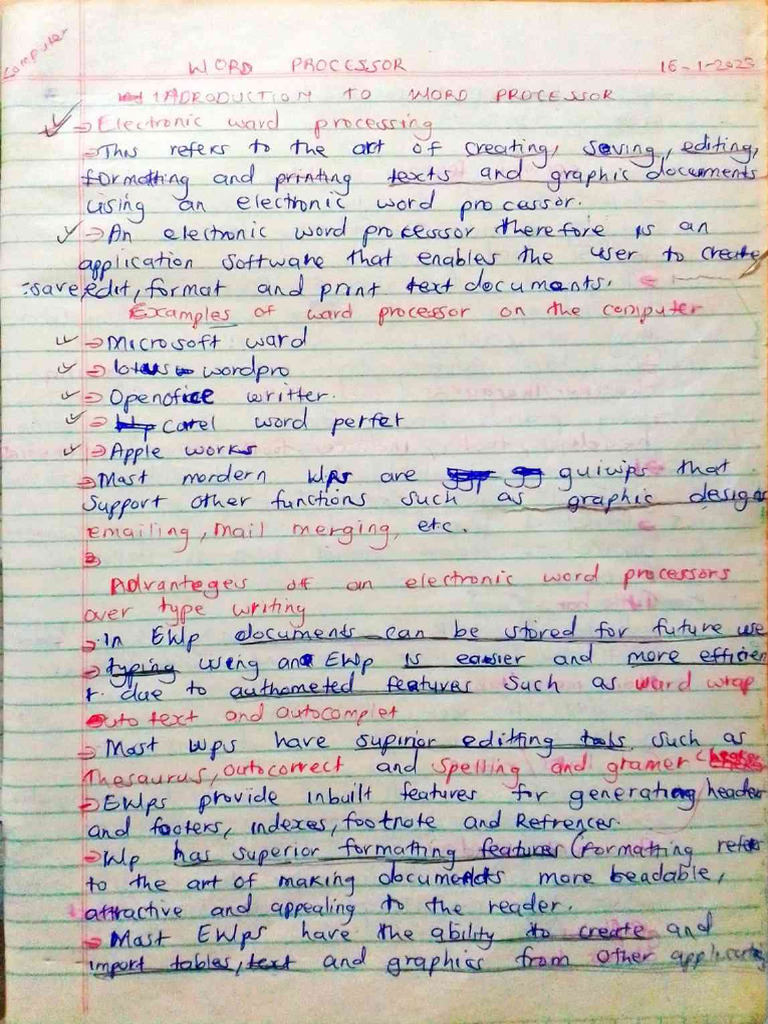 Computer
WORD PROCESSOR 16-1-2023
INDRODUCTION TO WORD PROCESSOR
→ Electronic ward processing
→ This refers to the art of creating, saving, editing,
formatting and printing texts and graphic documents
using an electronic word processor.
→ An electronic word processor therefore is an
application software that enables the user to create
save, edit, format and print text documents.
Examples of ward processor on the computer
→ Microsoft ward
→ lotus wordpro
→ Openofice writter.
→ carel word perfet
→ Apple works
→ Mast mordern Wps are guiwps that
support other functions such as graphic design
emailing, mail merging, etc.
Advanteges off an electronic word processors
over type writing
→ In EWp documents can be stored for future use
→ typing using an EWp is easier and more efficien
t. due to authometed features such as ward wrap
auto text and autocomplet
→ Mast wps have superior editting tools such as
Thesaurus, autocorrect and spelling and gramer
→ EWps provide inbuilt features for generating header
and footers, indexes, footnote and Refrences.
→ Wp has superior formatting features (formatting refer
to the art of making documents more beadable,
attractive and appealing to the reader.
→ Mast EWps have the ability to create and
import tables, text and graphics from other